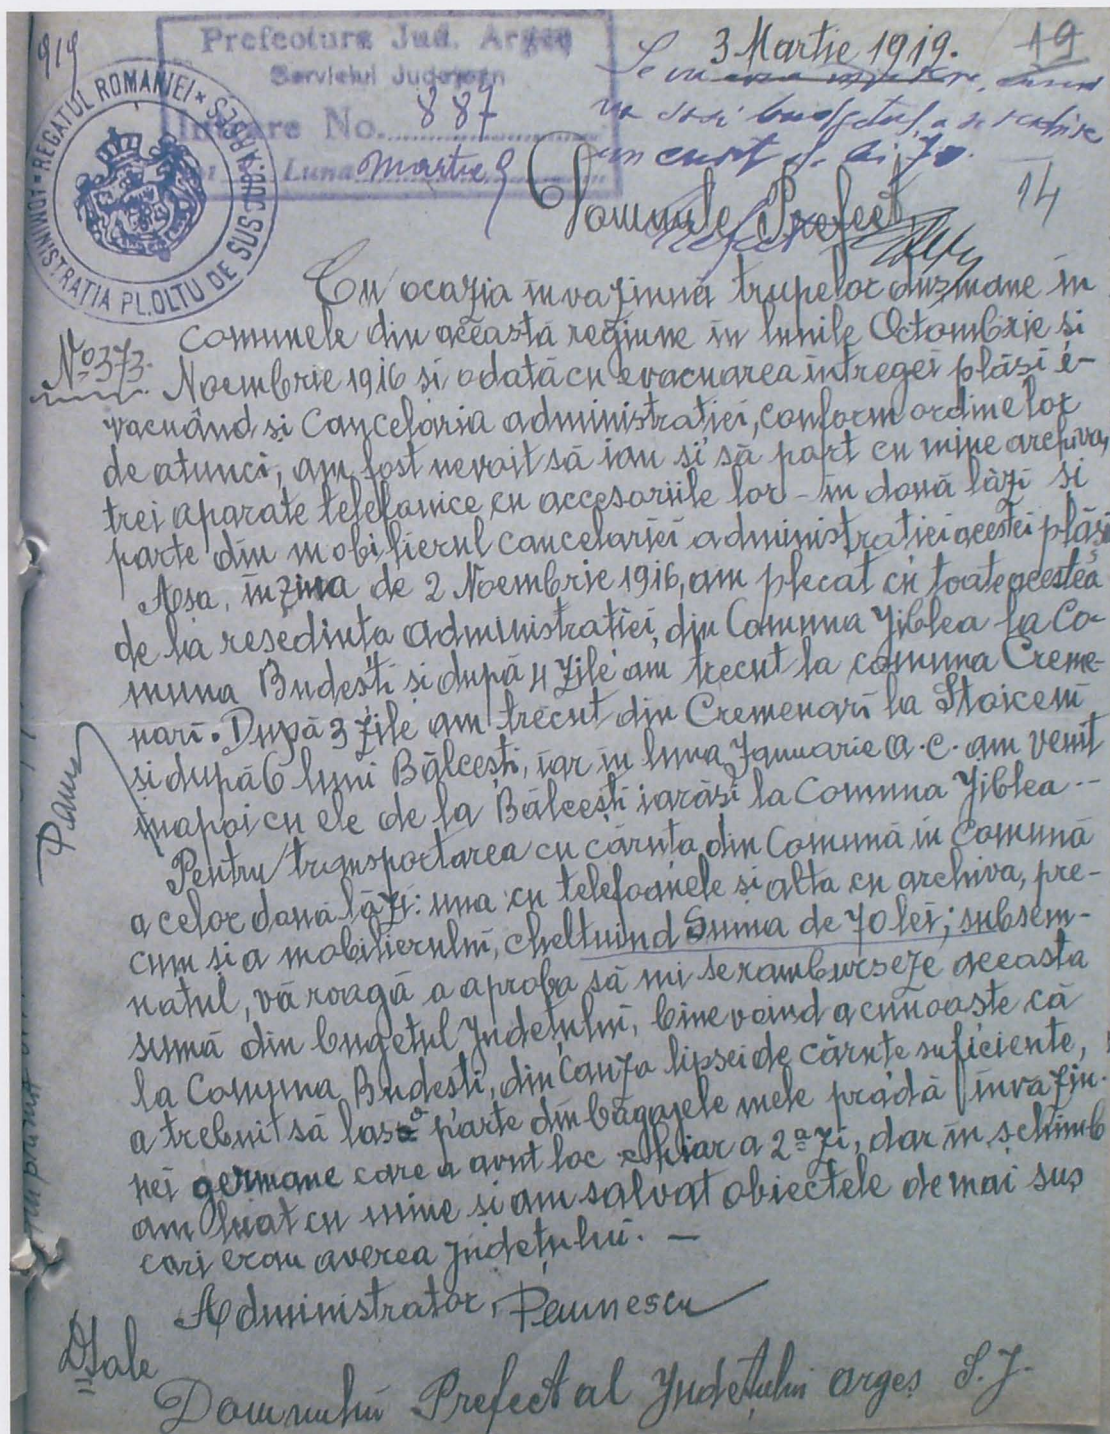 919
Prefectura Jud. Argeș
Serviciul Județean
Intrare No. 887
Luna Martie 9
ADMINISTRATIA PL. OLTU DE SUS JUD. ARGES * REGATUL ROMANIEI *
3 Martie 1919.
19
Se va
va sosi budgetul, a se
un de lei 70.
14
Domnule Prefect,
Prefect
Cu ocazia invaziunii trupelor dușmane in
comunele din această regiune in lunile Octombrie si
No 373.
Noembrie 1916 si odată cu evacuarea intregei plăsi e-
vacuând si Cancelaria administratiei, conform ordinelor
de atunci, am fost nevoit să iau si să port cu mine archiva,
trei aparate telefonice cu accesoriile lor - in două lăzi si
parte din mobilierul cancelariei administratiei acestei plăsi
Asa, in ziua de 2 Noembrie 1916, am plecat cu toate acestea
de la resedinta administratiei, din Comuna Jiblea la Co-
muna Budesti si după 4 zile am trecut la comuna Creme-
nari. După 3 zile am trecut din Cremenari la Stoiceni
si după 6 luni Bălcești, iar in luna Januarie a.c. am venit
inapoi cu ele de la Bălcești iarăsi la Comuna Jiblea --
Pentru transportarea cu căruta din Comună in Comună
a celor două lăzi: una cu telefoanele si alta cu archiva, pre-
cum si a mobilierului, cheltuind Suma de 70 lei; subsem-
natul, vă roagă a aproba să mi se ramburseze aceasta
sumă din bugetul Județului, binevoind a cunoaste că
la Comuna Budesti, din Cauza lipsei de cărute suficiente,
a trebuit să las o parte din bagajele mele pradă invaziu-
nei germane care a avut loc chiar a 2a zi, dar in schimb
am luat cu mine si am salvat obiectele de mai sus
cari erau averea Județului. —
Administrator, Păunescu
DSale
Domnului Prefect al Județului Argeș S. J.